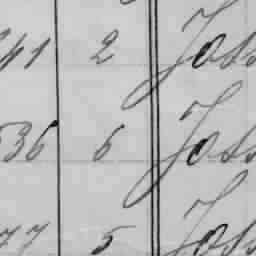 41 2 Jos
536 6 Jos
77 5 Jos